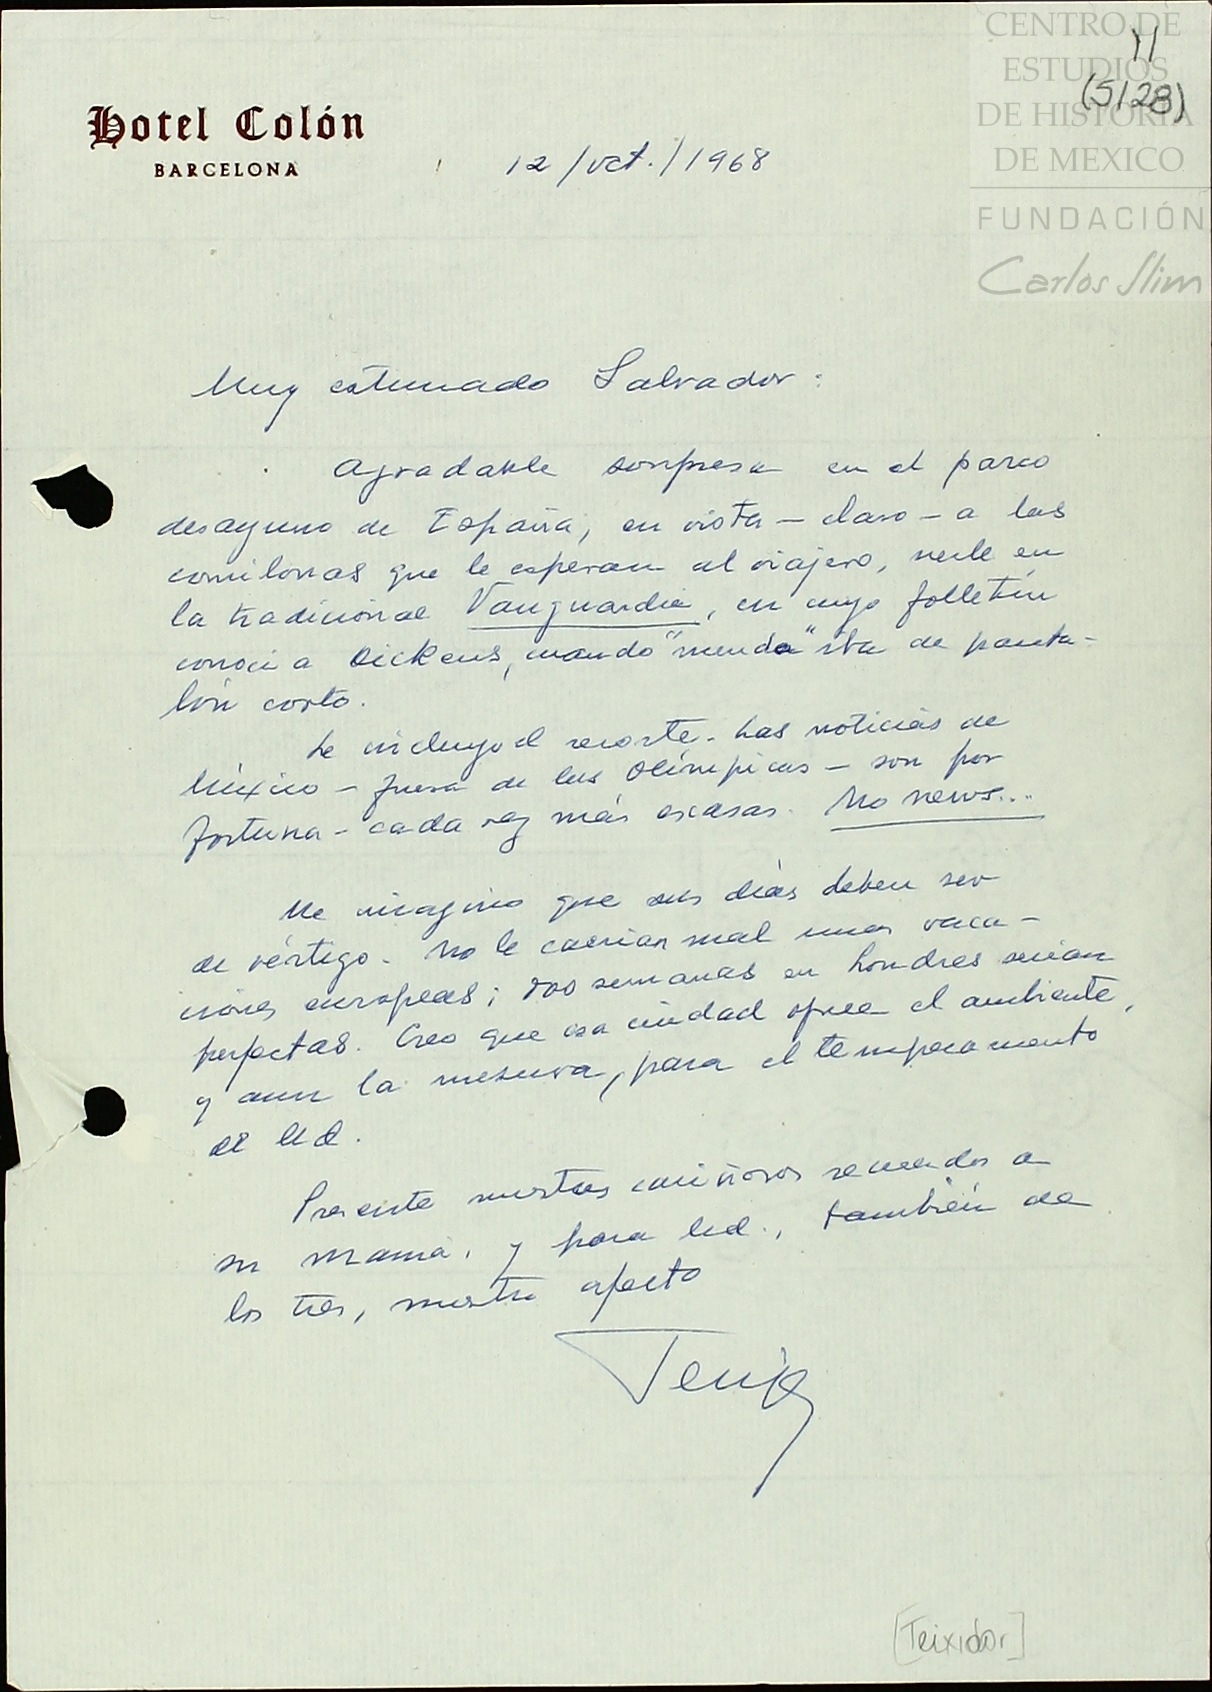 CENTRO DE
ESTUDIOS
DE HISTORIA
DE MEXICO
FUNDACIÓN
Carlos Slim
(5128)
Hotel Colón
BARCELONA
12/oct./1968
Muy estimado Salvador:
Agradable sorpresa en el parco
desayuno de España, en vista - claro - a las
comilonas que le esperan al viajero, verle en
la tradicional Vanguardia, en cuyo folletín
conocí a Dickens, cuando "menda" iba de panta-
lón corto.
Le incluyo el recorte. Las noticias de
México - fuera de las Olímpicas - son por
fortuna - cada vez más escasas. No news...
Me imagino que sus días deben ser
de vértigo. No le caerían mal unas vaca-
ciones europeas; dos semanas en Londres serían
perfectas. Creo que esa ciudad ofrece el ambiente,
y aun la mesura, para el temperamento
de Ud.
Presente nuestros cariñosos recuerdos a
su mamá, y para Ud., también de
los tres, nuestro afecto
[Teixidor]